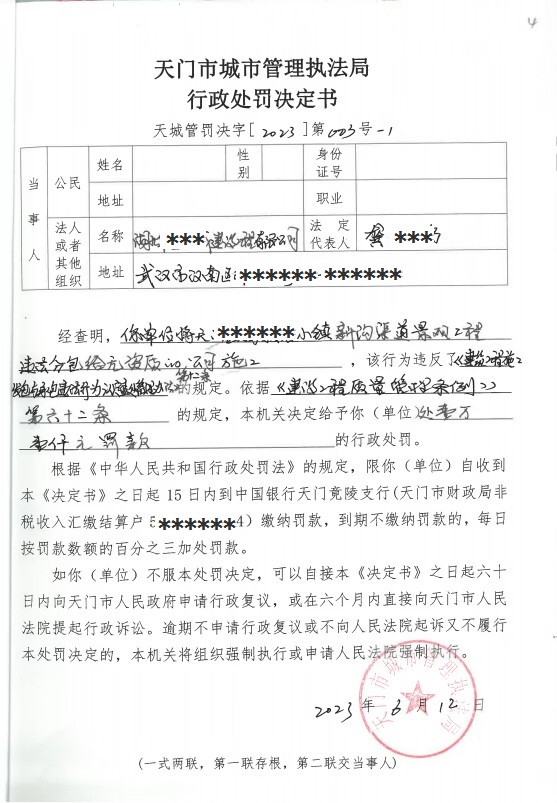 4
天门市城市管理执法局
行政处罚决定书
天城管罚决字[2023]第003号-1
当事人
公民
姓名
性别
身份证号
地址
职业
法人或者其他组织
名称
湖北***建设工程有限公司
法定代表人
龚***
地址
武汉市汉南区******·******
经查明，你单位将天******小镇新沟渠道景观工程
违法分包给无资质的公司施工，该行为违反了《建筑工程施工
发包与承包违法行为认定查处管理办法》第十二条的规定。依据《建设工程质量管理条例》
第六十二条的规定，本机关决定给予你（单位）处壹万
壹仟元罚款的行政处罚。
根据《中华人民共和国行政处罚法》的规定，限你（单位）自收到
本《决定书》之日起15日内到中国银行天门竟陵支行(天门市财政局非
税收入汇缴结算户5******4）缴纳罚款，到期不缴纳罚款的，每日
按罚款数额的百分之三加处罚款。
如你（单位）不服本处罚决定，可以自接本《决定书》之日起六十
日内向天门市人民政府申请行政复议，或在六个月内直接向天门市人民
法院提起行政诉讼。逾期不申请行政复议或不向人民法院起诉又不履行
本处罚决定的，本机关将组织强制执行或申请人民法院强制执行。
天门市城市管理执法局
2023年6月12日
(一式两联，第一联存根，第二联交当事人)